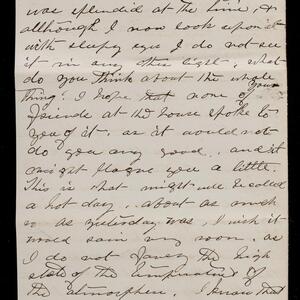 was splendid at the time, &
although I now look upon it
with sleepy eyes I do not see
it in any other light. What
do you think about the whole
thing? I hope that none of your
friends at the house spoke to
you of it, as it would not
do you any good, and it
might plague you a little.
This is what might well be called
a hot day, about as much
so as yesterday was, I wish it
would rain very soon, as
I do not fancy the high
state of the temperature of
the atmosphere. I know that